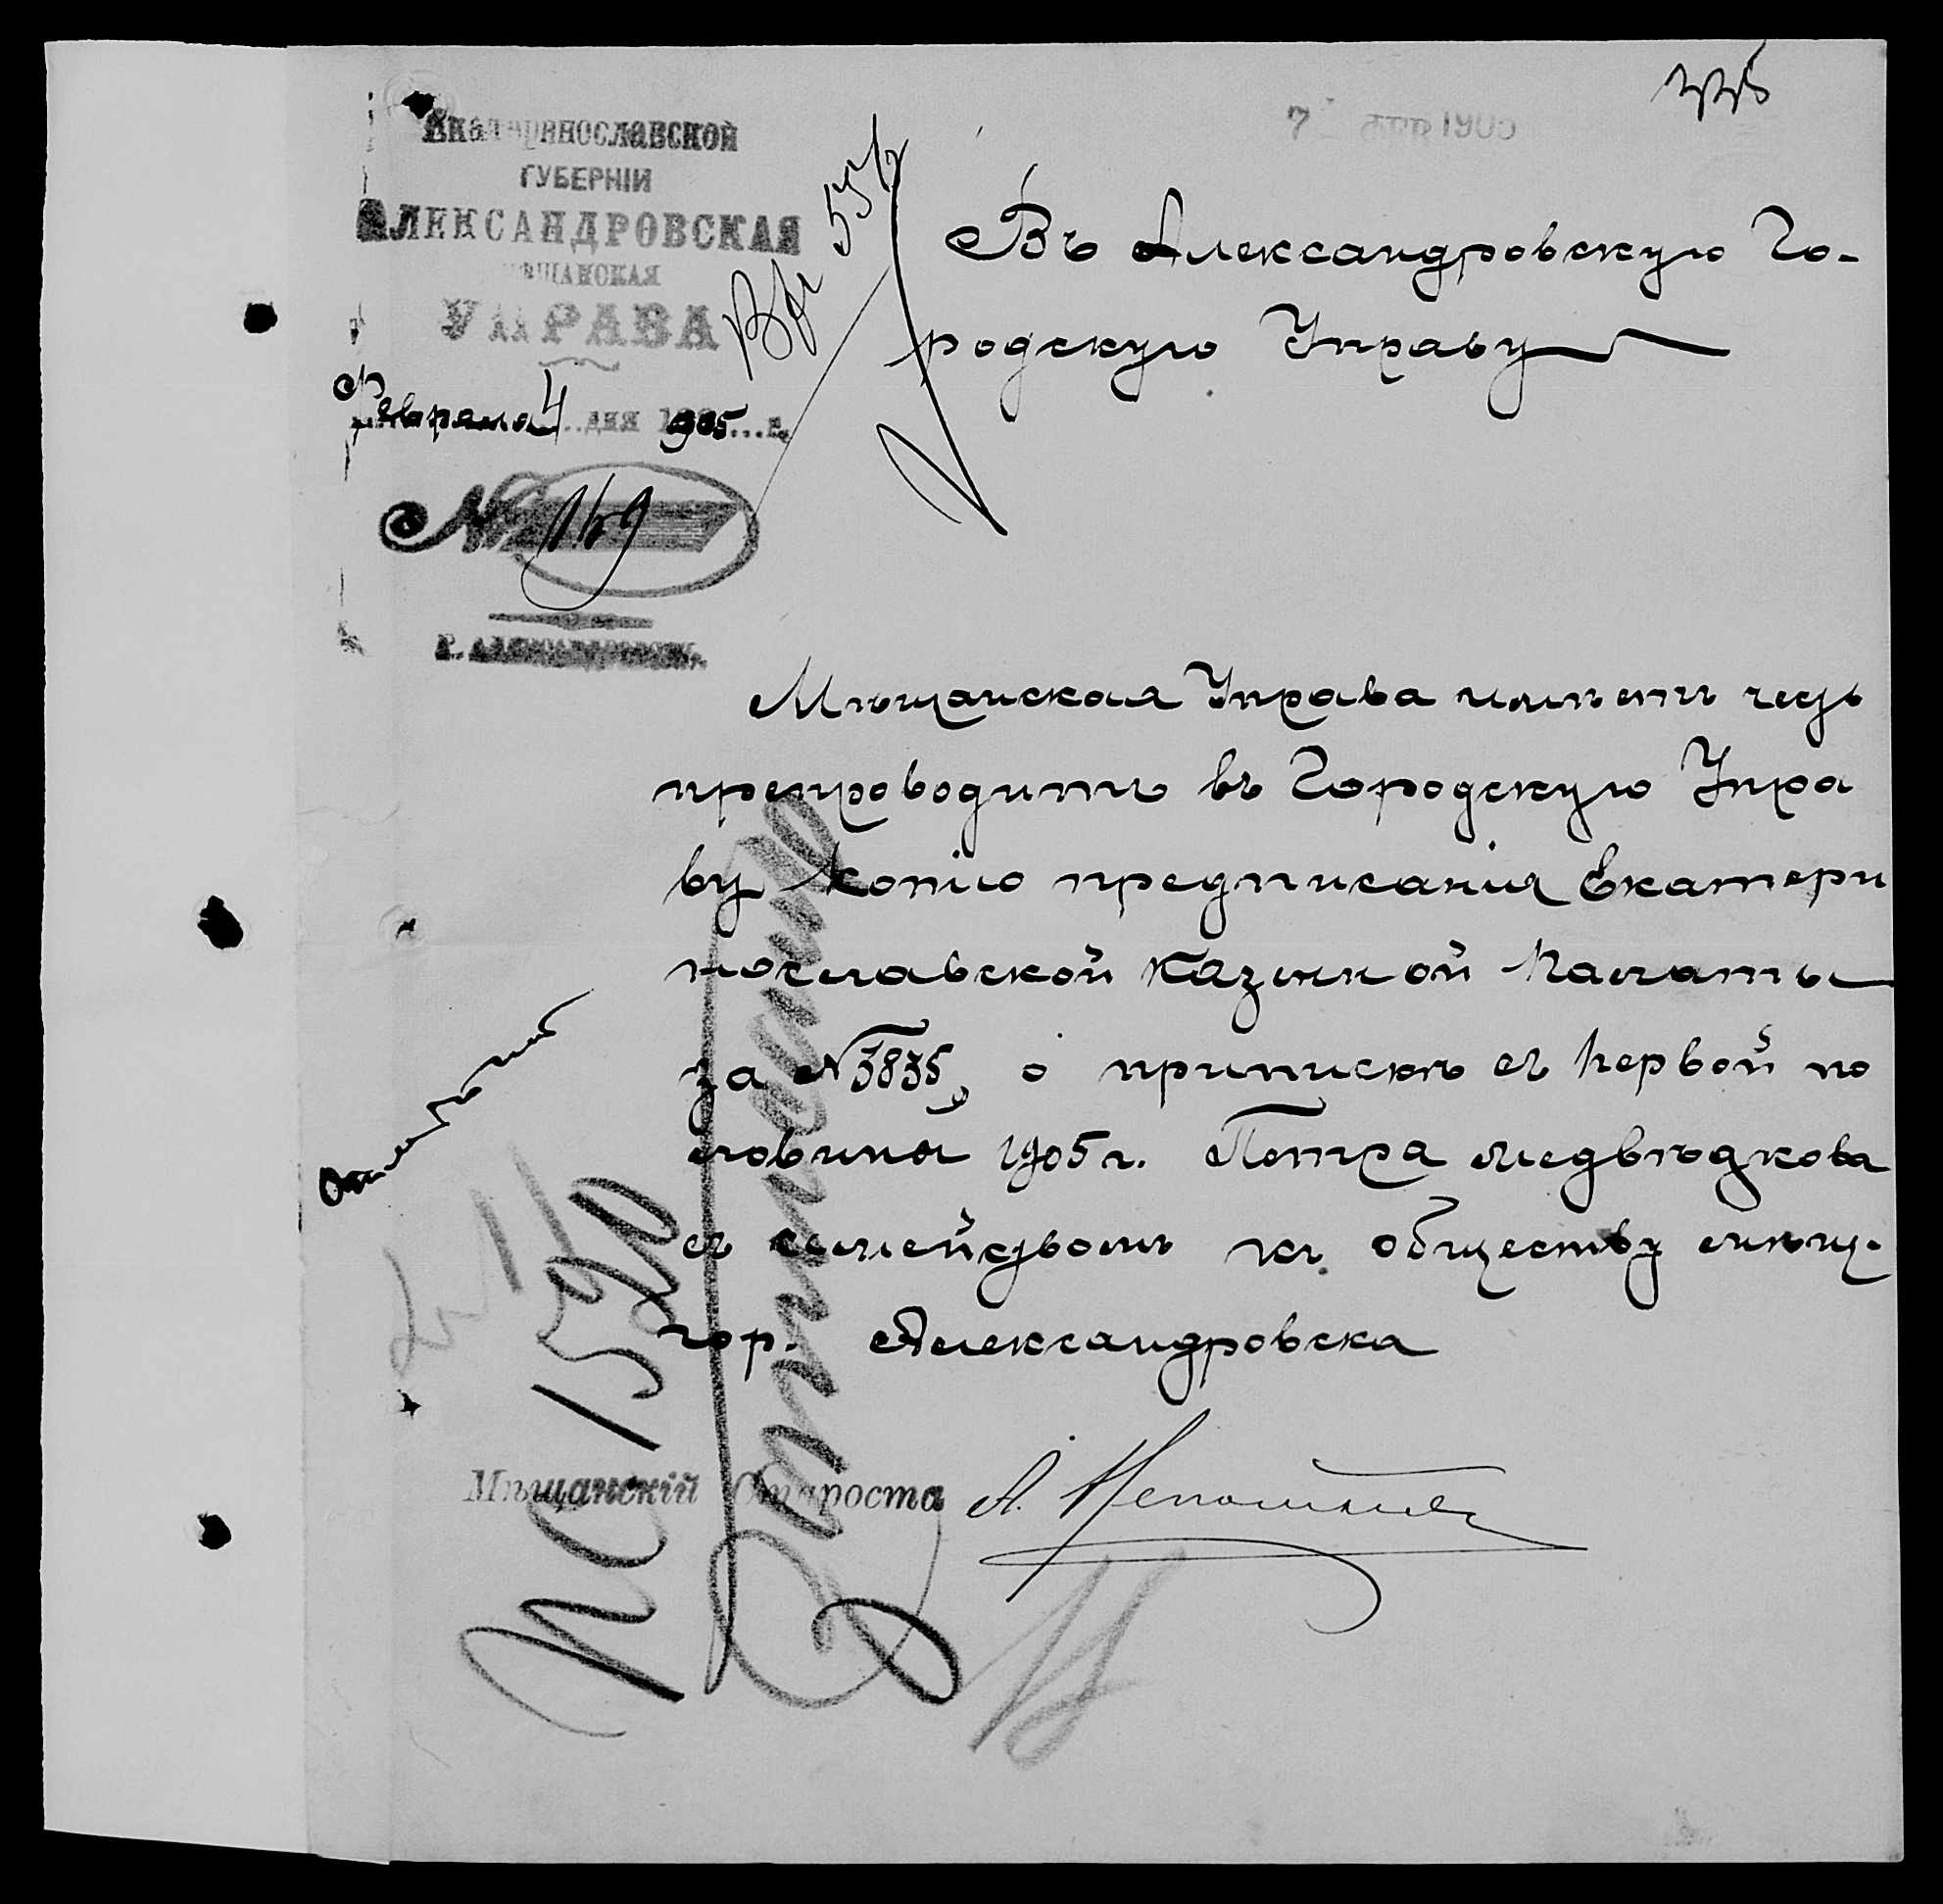 Екатеринославской
ГУБЕРНІИ
АЛЕКСАНДРОВСКАЯ
МѢЩАНСКАЯ
УПРАВА
Февраля 4 дня 1905 г.
№ 169
Г. Александровскъ.
7 1905
Въ Александровскую Го-
родскую Управу
Мѣщанская Управа имѣетъ честь
препроводить въ Городскую Упра
ву копію предписанія Екатери
нославской Казенной Палаты
за № 3835, о припискѣ съ первой по
ловины 1905 г. Петра Медвѣдкова
съ семействомъ къ обществу мѣщ.
гор. Александровска
Мѣщанскій Староста А.